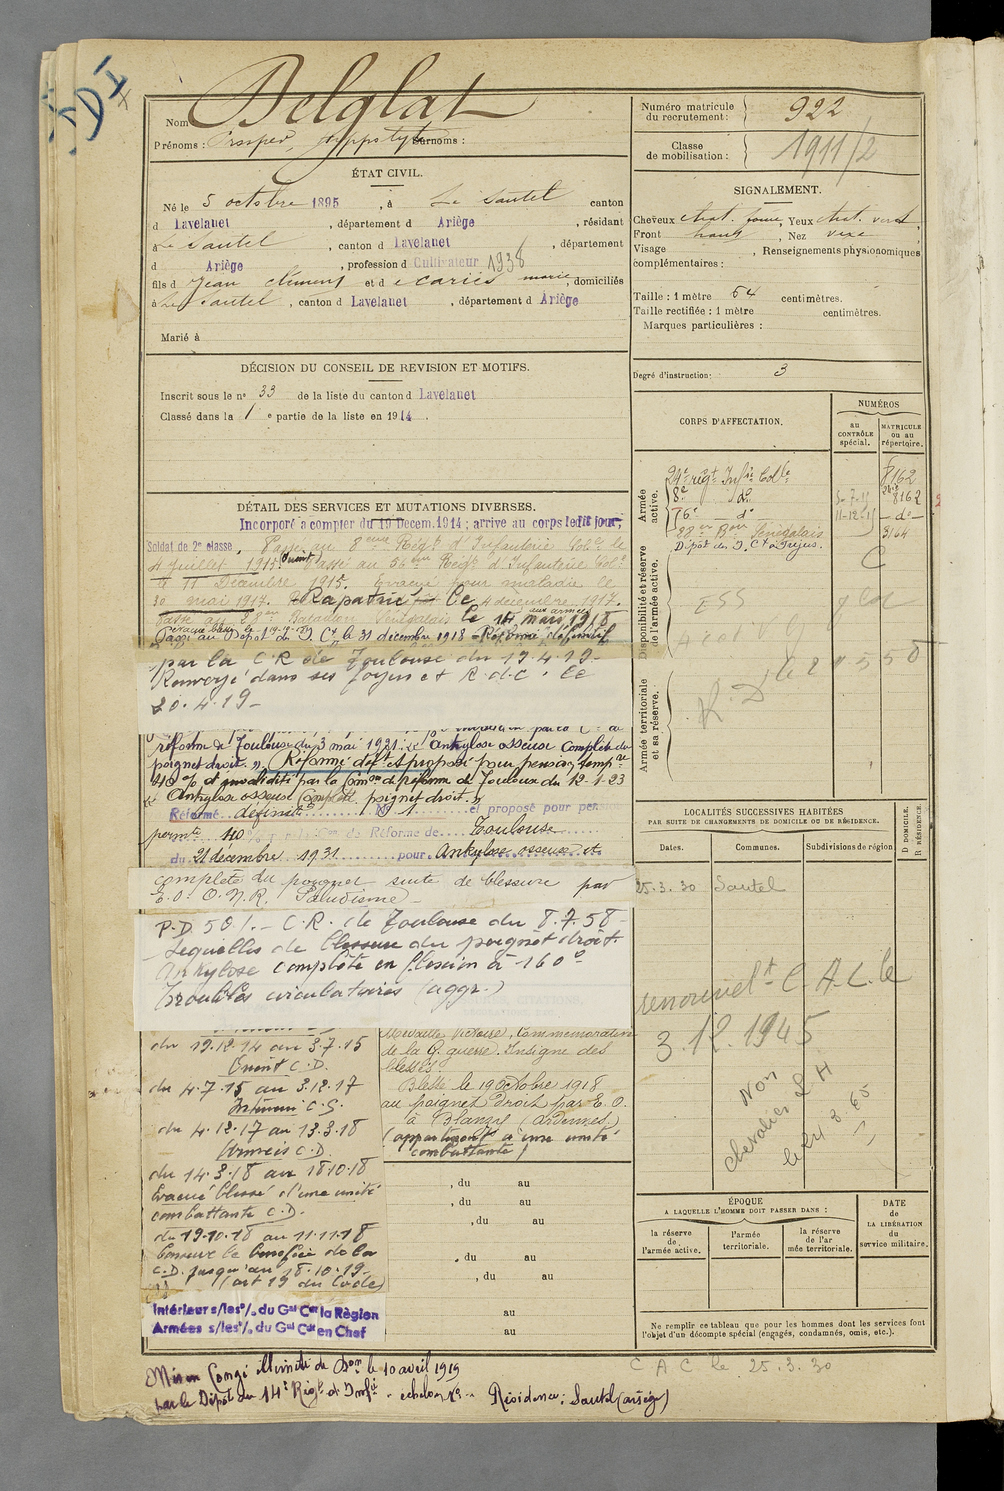 Nom Delglat
Prénoms : Prosper, Hippolyte Surnoms :
ÉTAT CIVIL.
Né le 5 octobre 1895, à Le Sautel canton
d Lavelanet, département d Ariège, résidant
à Le Sautel, canton d Lavelanet, département
d Ariège, profession d Cultivateur 1938
fils d Jean Clément et d marie, domiciliés
à Le Sautel, canton d Lavelanet, département d Ariège
Marié à
DÉCISION DU CONSEIL DE REVISION ET MOTIFS.
Inscrit sous le n° 33 de la liste du canton d Lavelanet
Classé dans la 1 e partie de la liste en 1914.
DÉTAIL DES SERVICES ET MUTATIONS DIVERSES.
Incorporé à compter du 19 Decem. 1914 ; arrivé au corps ledit jour,
Soldat de 2e classe. Passé au 8eme Régt d'Infanterie Colle le
4 juillet 1915. Orient Passé au 56eme Régt d'Infanterie Colle
le 11 Décembre 1915. Evacué pour maladie le
30 mai 1917. Rapatrié le 4 décembre 1917.
Passé au 28eme Bataillon Sénégalais le 14 mars 1918 aux armées
évacué blessé le 19-10-18
Passé au Dépôt du I. C. le 31 décembre 1918 - Réformé définitif
par la C.R de Toulouse du 19.4.19-
Renvoyé dans ses foyers et R.d.C. le
20.4.19-
réforme de Toulouse du 3 mai 1921 : "Ankylose osseuse complète du
poignet droit." Réformé déft et proposé pour pension temp re
40% d'invalidité par la Comon de réforme de Toulouse du 12-1-23
"Ankylose osseuse complète poignet droit."
Réformé définitif N° 1 et proposé pour pension
permte 40% par la Con de Réforme de Toulouse
du 21 décembre 1931 pour Ankylose osseuse et
complète du poignet suite de blessure par
E.O. O.N.R. Paludisme -
P.D 50%. - C.R. de Toulouse du 8.7.58 -
Sequelles de blessure du poignet droit.
Ankylose complète en flexion à 160°
troubles circulatoires (aggr.)
du 19.12.14 au 3.7.15
Orient C.D.
du 4.7.15 au 3.12.17
Intérieur C.S.
du 4.12.17 au 13.3.18
Armées C.D.
du 14.3.18 au 18.10.18
Evacué blessé d'une unité
combattante C.D.
du 19.10.18 au 11.11.18
Conserve le bénéfice de la
C.D. jusqu'au 18.10.19-
(art 19 du Code)
Intérieur s/les °/. du Gal Ct la Région
Armées s/les °/. du Gal Ct en Chef
Médaille Victoire, Commémorative
de la G. guerre. Insigne des
blessés
Blessé le 19 Octobre 1918
au poignet droit par E. O.
à Blanzy (Ardennes)
(appartenant à une unité
combattante)
, du au
, du au
, du au
, du au
, du au
au
au
Mis en Congé illimité de Don le 10 avril 1919
par le Dépôt du 14e Régt d'Infie - échelon N° - Résidence : Sautel (ariège)
Numéro matricule
du recrutement : 922
Classe
de mobilisation : 1911/2
SIGNALEMENT.
Cheveux chat. foncé, Yeux chat. verd.,
Front haut, Nez vexe
Visage , Renseignements physionomiques
complémentaires :
Taille : 1 mètre 64 centimètres.
Taille rectifiée : 1 mètre centimètres.
Marques particulières :
Degré d'instruction : 3
CORPS D'AFFECTATION.
NUMÉROS
au CONTRÔLE spécial.
MATRICULE ou au répertoire.
Armée active.
24e régt Infie Colle 8162
8e do 8162
56e do 11-12-15 do
28e Bon Sénégalais
Dépôt du I. Ct à Fréjus.
Disponibilité et réserve de l'armée active.
Armée territoriale et sa réserve.
R.D
LOCALITÉS SUCCESSIVES HABITÉES
PAR SUITE DE CHANGEMENTS DE DOMICILE OU DE RÉSIDENCE.
D DOMICILE. R RÉSIDENCE.
Dates. Communes. Subdivisions de région
25.3.30 Sautel
renouvelt C.A.C. le
3.12.1945
Non
chevalier L H
ÉPOQUE
A LAQUELLE L'HOMME DOIT PASSER DANS :
la réserve de l'armée active.
l'armée territoriale.
la réserve de l'armée territoriale.
DATE de LA LIBÉRATION du service militaire.
Ne remplir ce tableau que pour les hommes dont les services font
l'objet d'un décompte spécial (engagés, condamnés, omis, etc.).
C A C le 25.3.30